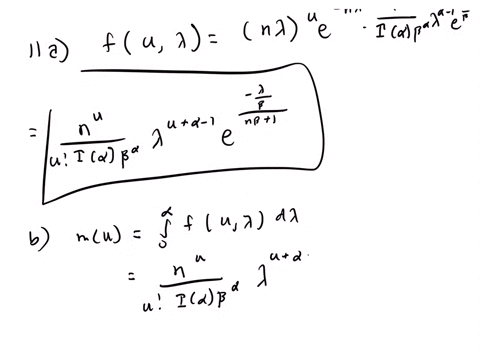 11 a) f(u, λ) = (nλ)^u e^{-nλ} · 1/(Γ(α) β^α) λ^{α-1} e^
= n^u/(u! Γ(α) β^α) λ^{u+α-1} e^{(-λ/β)/(nβ+1)}
b) m(u) = ∫_0^α f(u, λ) dλ
= n^u/(u! Γ(α) β^α) λ^{u+α}